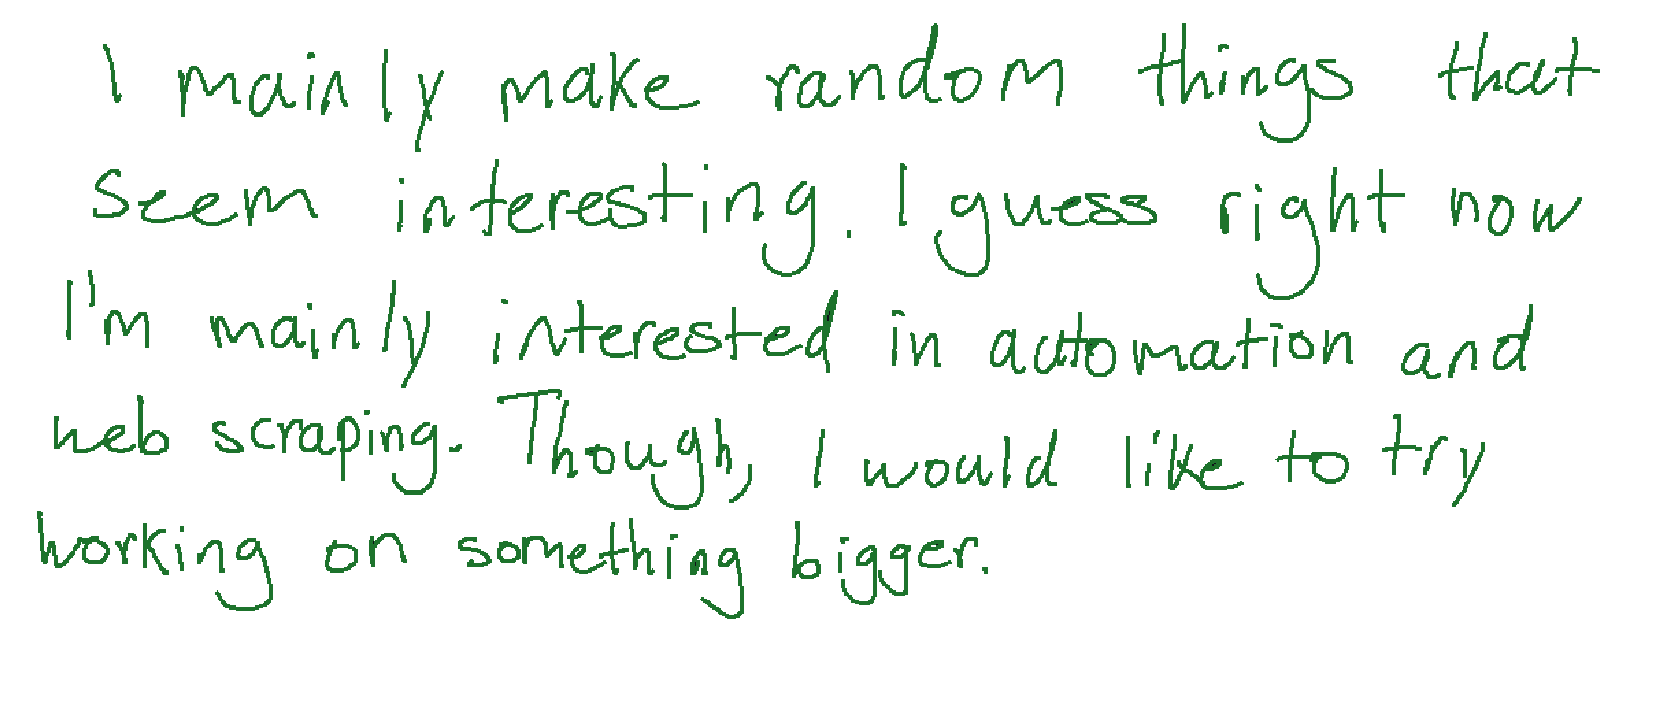 I mainly make random things that
seem interesting. I guess right now
I'm mainly interested in automation and
web scraping. Though, I would like to try
working on something bigger.